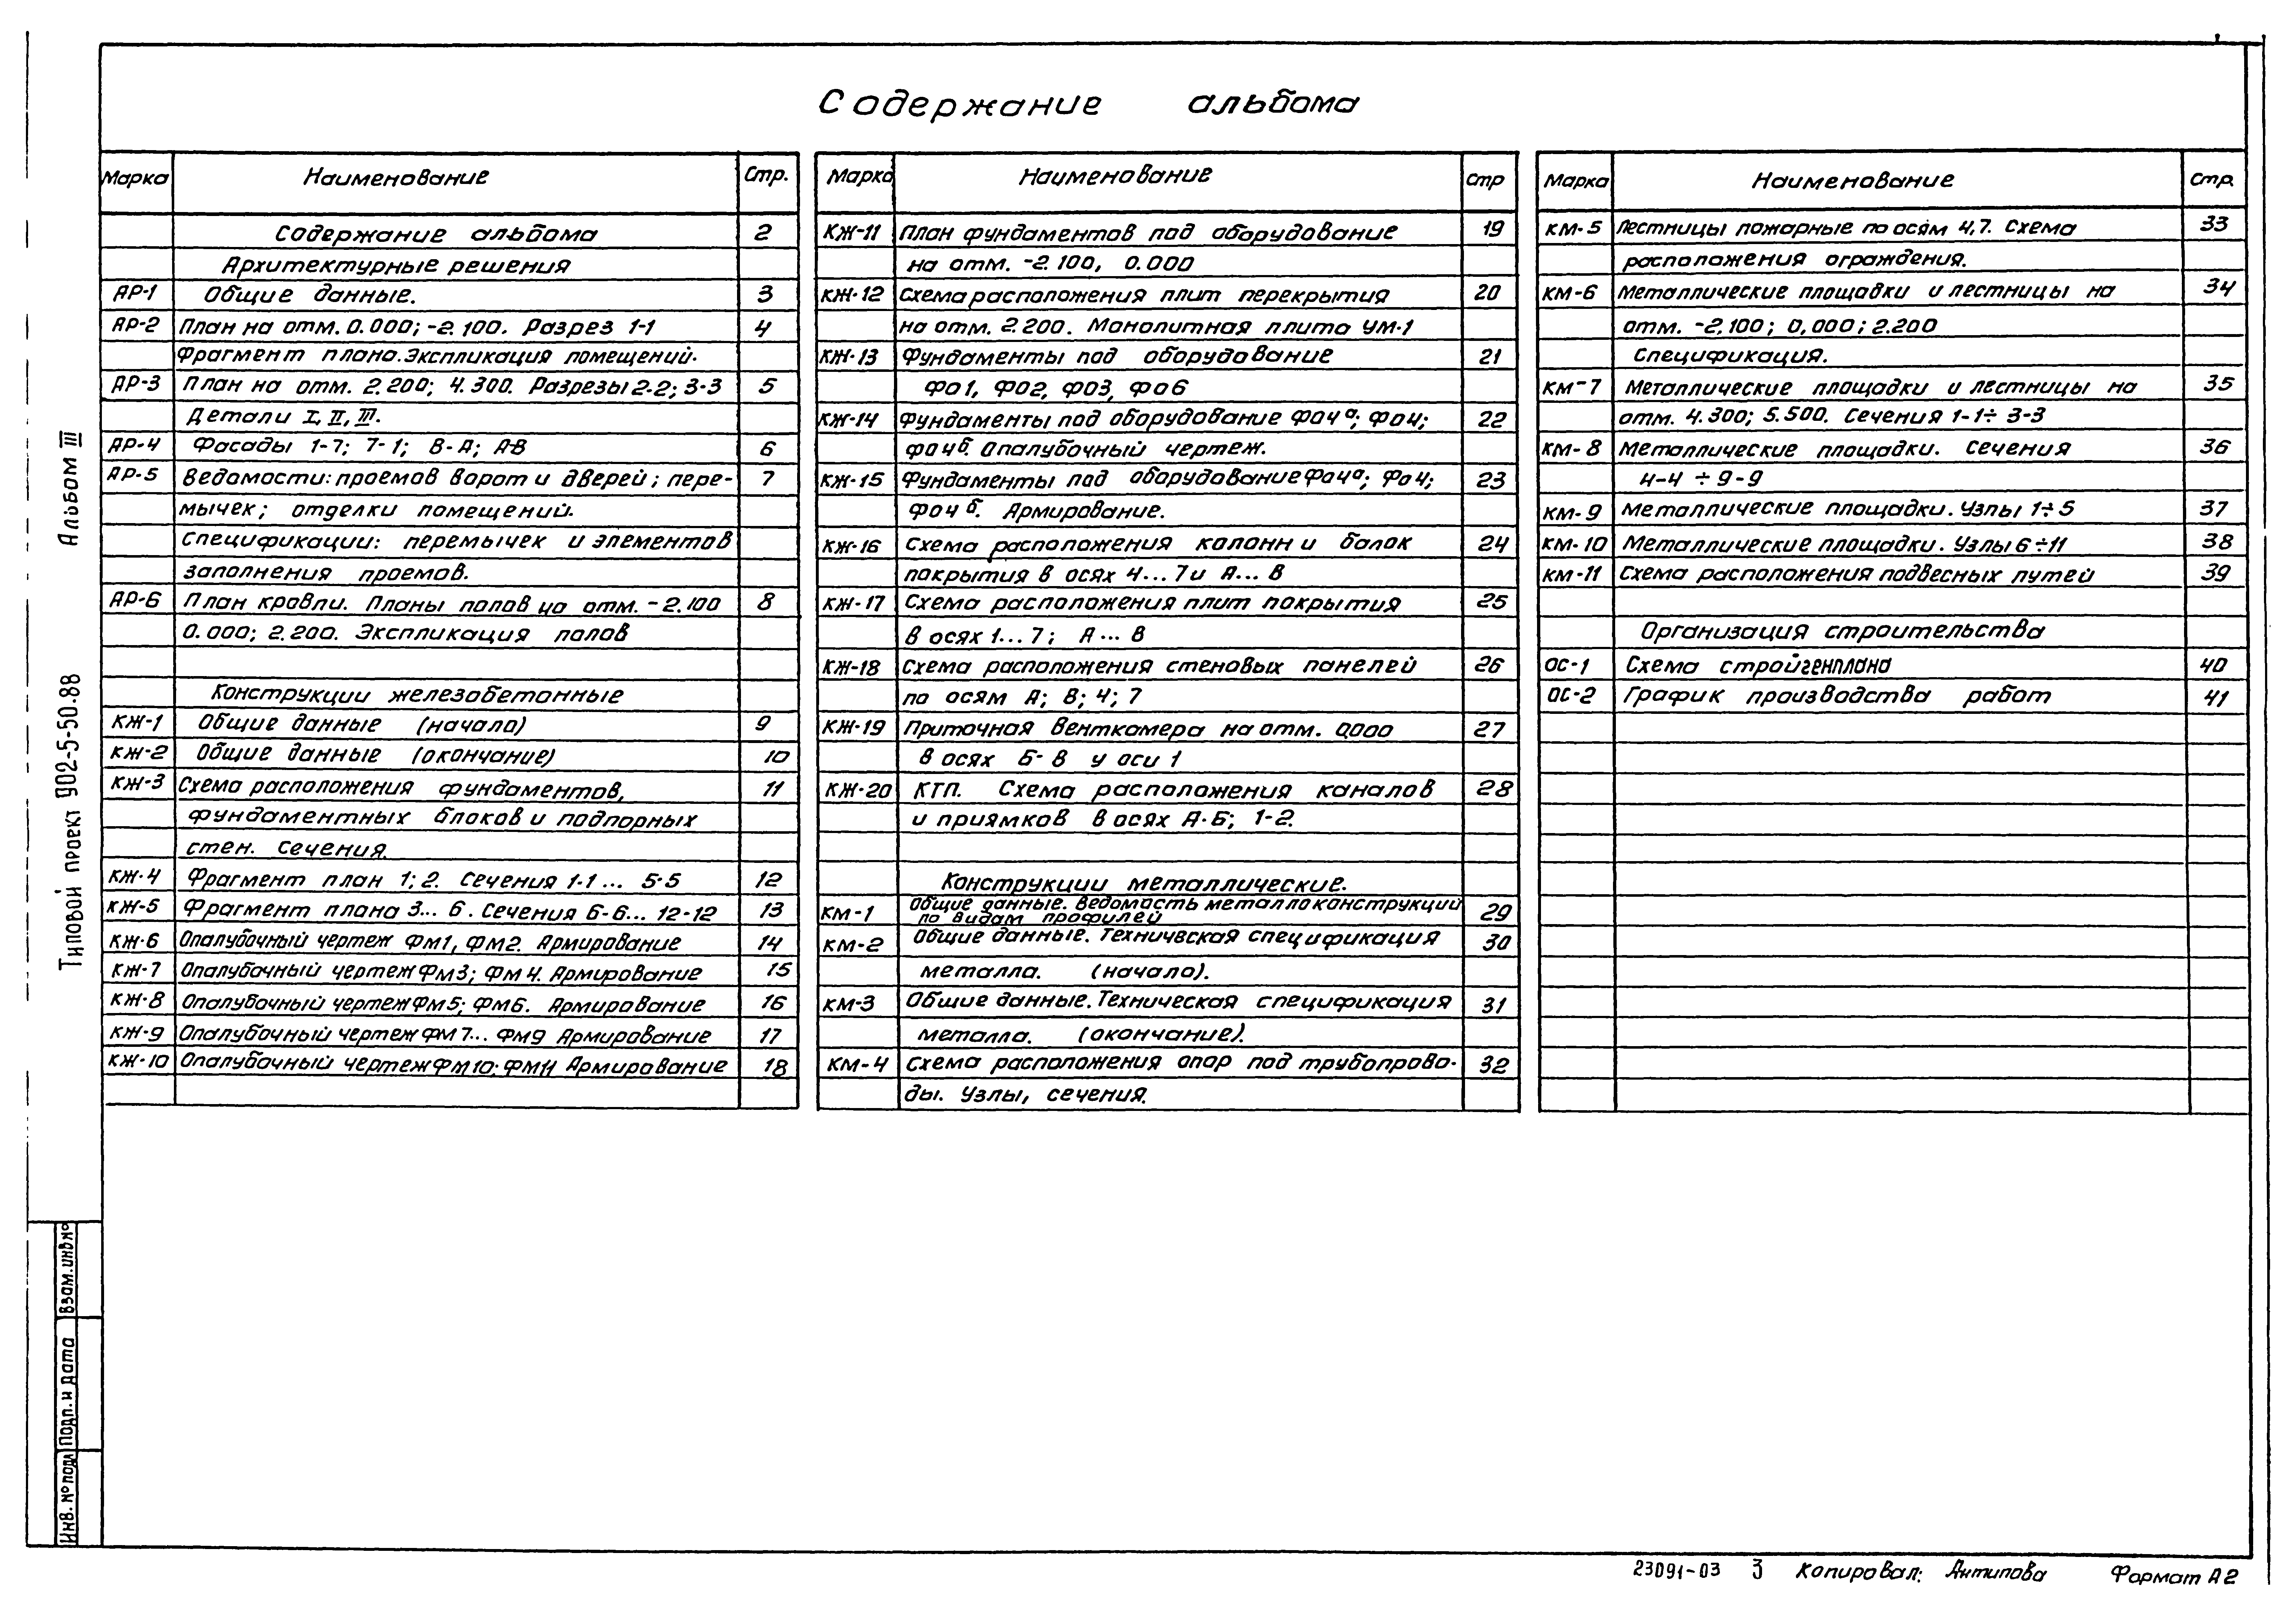 Содержание альбома
Марка Наименование Стр.
Содержание альбома 2
Архитектурные решения
АР-1 Общие данные. 3
АР-2 План на отм. 0.000; -2.100. Разрез 1-1 4
Фрагмент плана. Экспликация помещений.
АР-3 План на отм. 2.200; 4.300. Разрезы 2-2; 3-3 5
Детали I, II, III.
АР-4 Фасады 1-7; 7-1; В-А; А-В 6
АР-5 Ведомости: проемов ворот и дверей; пере- 7
мычек; отделки помещений.
Спецификации: перемычек и элементов
заполнения проемов.
АР-6 План кровли. Планы полов на отм. -2.100 8
0.000; 2.200. Экспликация полов
Конструкции железобетонные
КЖ-1 Общие данные (начало) 9
КЖ-2 Общие данные (окончание) 10
КЖ-3 Схема расположения фундаментов, 11
фундаментных блоков и подпорных
стен. Сечения.
КЖ-4 Фрагмент план 1; 2. Сечения 1-1 ... 5-5 12
КЖ-5 Фрагмент плана 3... 6. Сечения 6-6... 12-12 13
КЖ-6 Опалубочный чертеж Фм1, Фм2. Армирование 14
КЖ-7 Опалубочный чертеж Фм3; Фм4. Армирование 15
КЖ-8 Опалубочный чертеж Фм5; Фм6. Армирование 16
КЖ-9 Опалубочный чертеж Фм7... Фм9 Армирование 17
КЖ-10 Опалубочный чертеж Фм10; Фм11 Армирование 18
Марка Наименование Стр
КЖ-11 План фундаментов под оборудование 19
на отм. -2.100, 0.000
КЖ-12 Схема расположения плит перекрытия 20
на отм. 2.200. Монолитная плита УМ-1
КЖ-13 Фундаменты под оборудование 21
Фо1, Фо2, Фо3, Фо6
КЖ-14 Фундаменты под оборудование Фо4а; Фо4; 22
Фо4б. Опалубочный чертеж.
КЖ-15 Фундаменты под оборудование Фо4а; Фо4; 23
Фо4б. Армирование.
КЖ-16 Схема расположения колонн и балок 24
покрытия в осях 4...7 и А... В
КЖ-17 Схема расположения плит покрытия 25
в осях 1... 7; А... В
КЖ-18 Схема расположения стеновых панелей 26
по осям А; В; 4; 7
КЖ-19 Приточная венткамера на отм. 0,000 27
в осях Б-В у оси 1
КЖ-20 КТП. Схема расположения каналов 28
и приямков в осях А-Б; 1-2.
Конструкции металлические.
КМ-1 Общие данные. Ведомость металлоконструкций 29
по видам профилей
КМ-2 Общие данные. Техническая спецификация 30
металла. (начало).
КМ-3 Общие данные. Техническая спецификация 31
металла. (окончание).
КМ-4 Схема расположения опор под трубопрово- 32
ды. Узлы, сечения.
Марка Наименование Стр.
КМ-5 Лестницы пожарные по осям 4, 7. Схема 33
расположения ограждения.
КМ-6 Металлические площадки и лестницы на 34
отм. -2,100; 0,000; 2.200
Спецификация.
КМ-7 Металлические площадки и лестницы на 35
отм. 4.300; 5.500. Сечения 1-1÷3-3
КМ-8 Металлические площадки. Сечения 36
4-4 ÷ 9-9
КМ-9 Металлические площадки. Узлы 1÷5 37
КМ-10 Металлические площадки. Узлы 6÷11 38
КМ-11 Схема расположения подвесных путей 39
Организация строительства
ОС-1 Схема стройгенплана 40
ОС-2 График производства работ 41
Типовой проект 902-5-50.88 Альбом III
Взам. инв №
Подп. и дата
Инв. № подл
23091-03 3 Копировал: Антипова Формат А2